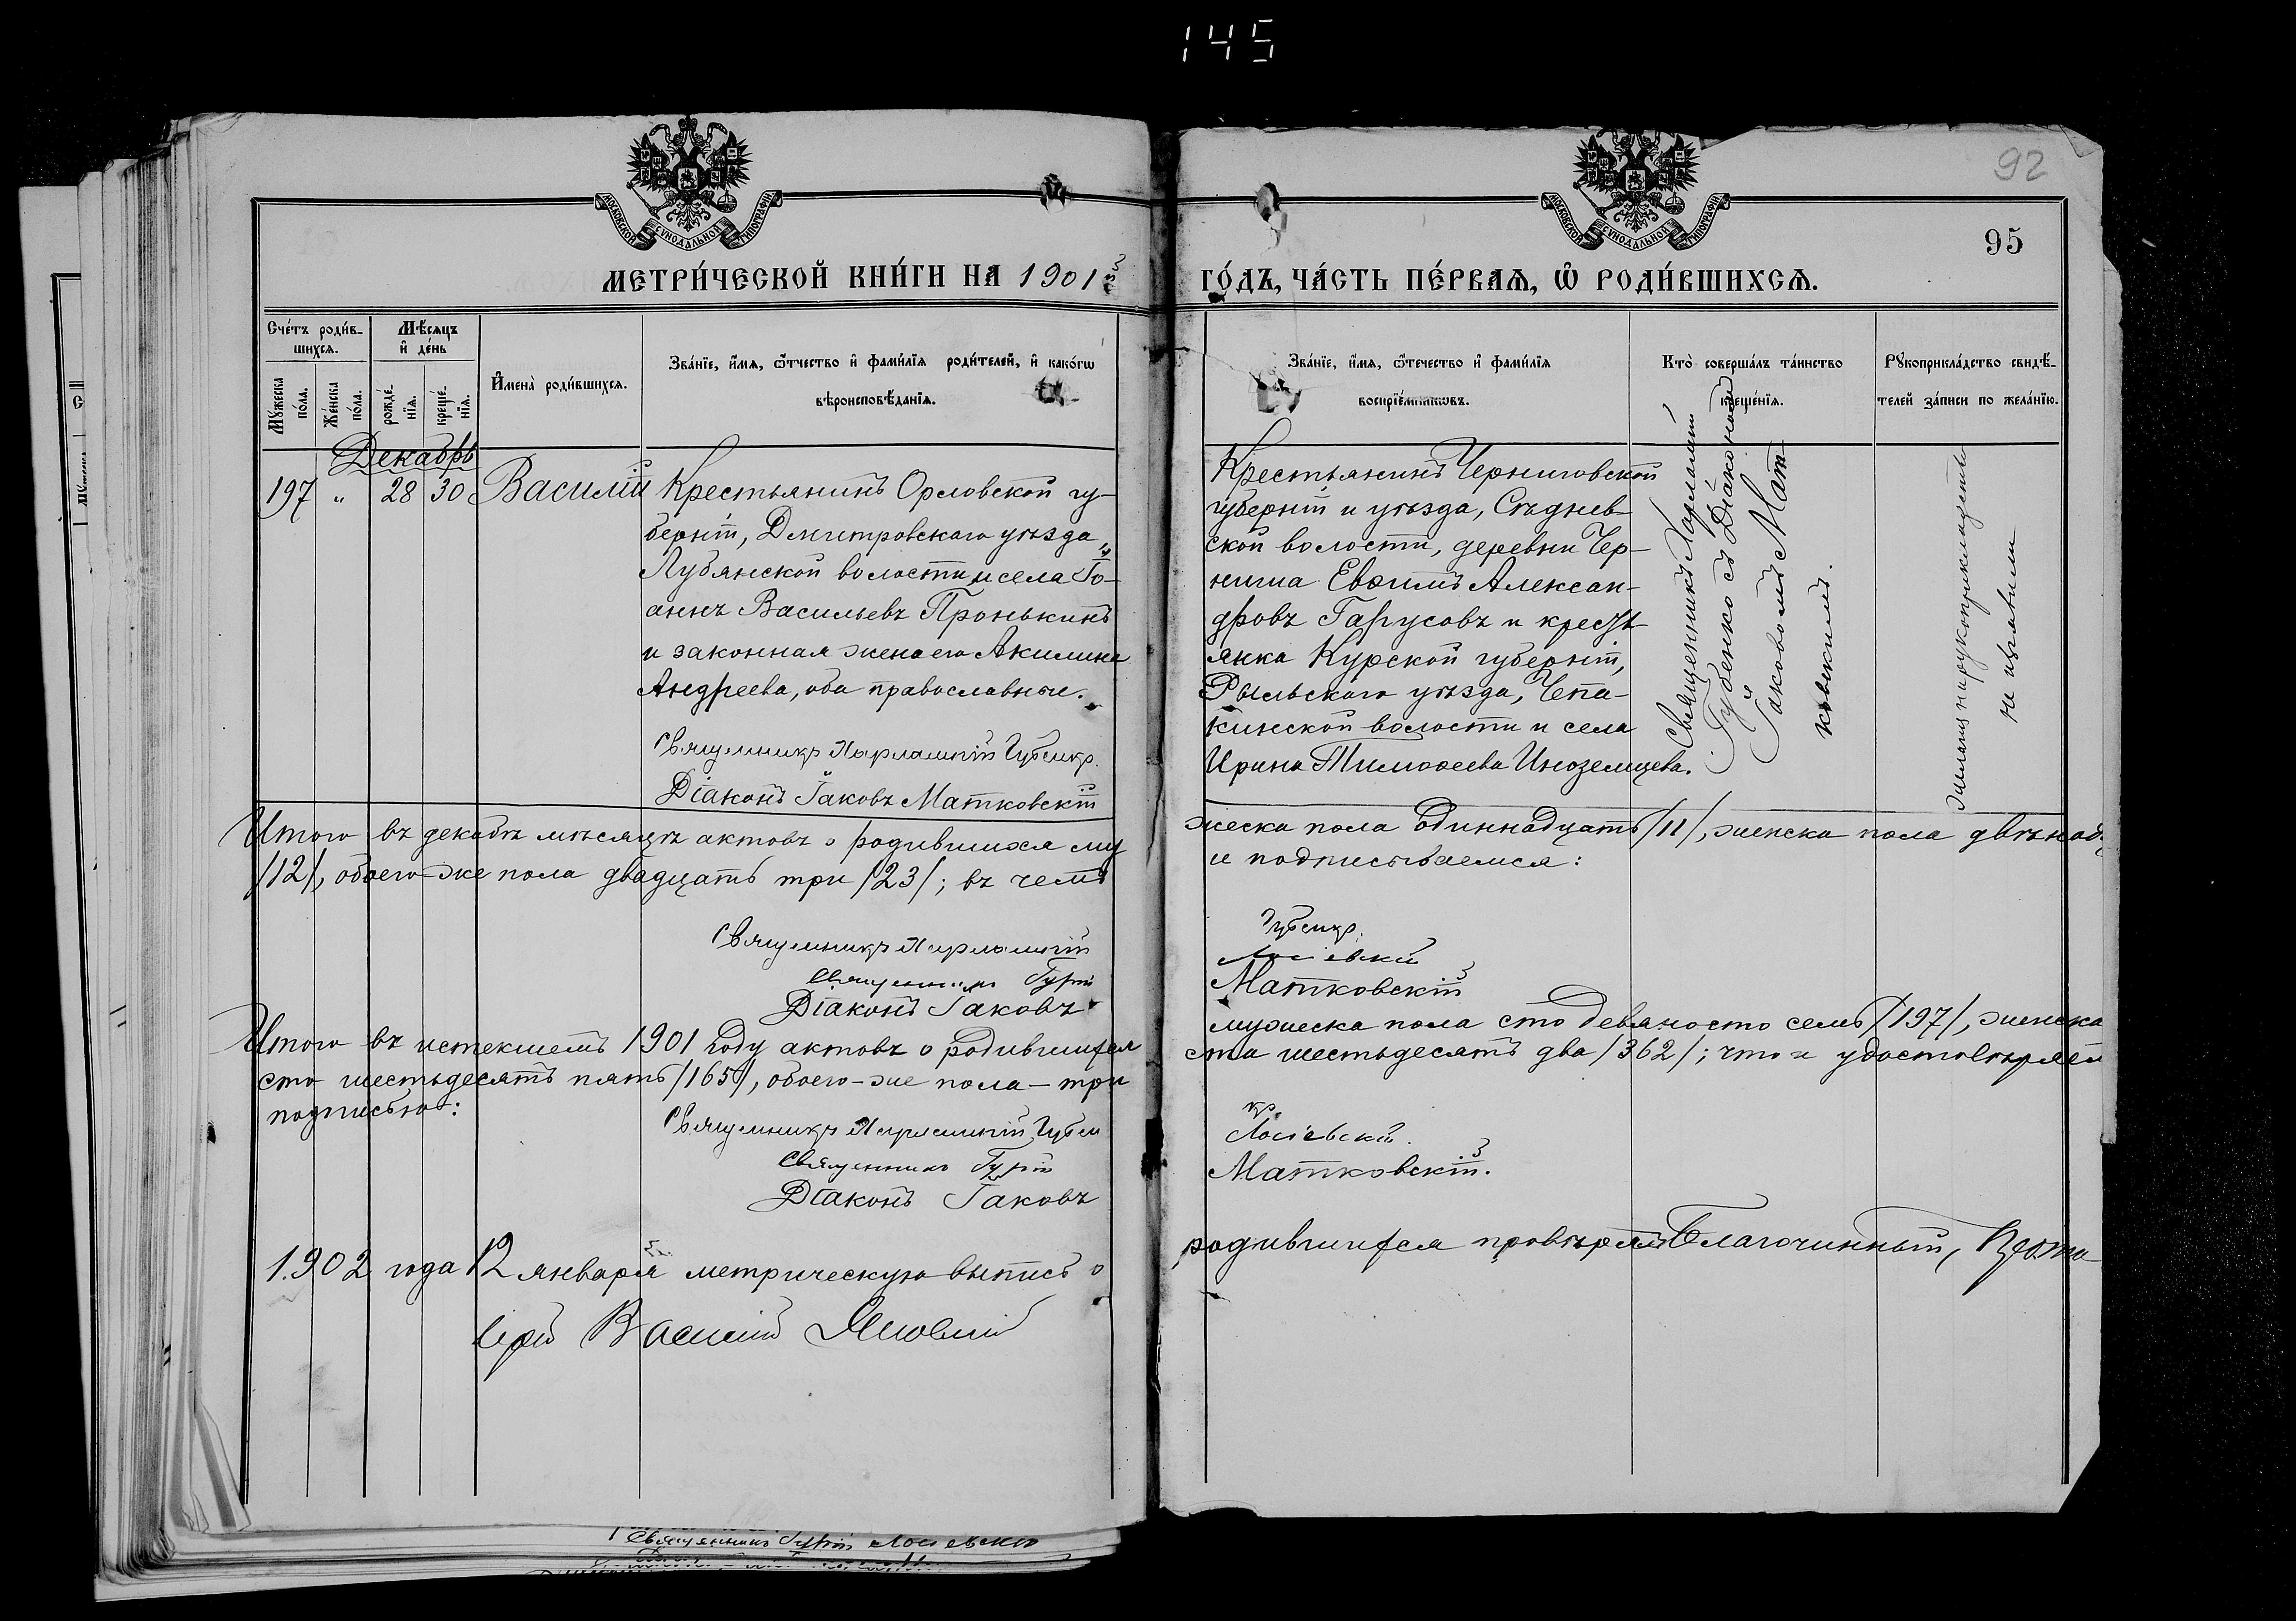 145
92
95
МОСКОВСКОЙ СѴНОДАЛЬНОЙ ТИПОГРАФІИ
МОСКОВСКОЙ СѴНОДАЛЬНОЙ ТИПОГРАФІИ
МЕТРИ́ЧЕСКОЙ КНИ́ГИ НА 1901й ГО́ДЪ, ЧА́СТЬ ПЕ́РВАѦ, Ѽ РОДИ́ВШИХСѦ.
Счéтъ роди́в-
шихсѧ.
Мѣ́сѧцъ
и҆ дéнь
Мꙋ́жеска
по́ла.
Же́нска
по́ла.
рождé-
нїѧ.
крещé-
нїѧ.
И҆мена̀ роди́вшихсѧ.
Зва́нїе, и҆́мѧ, ѻ҆́тчество и҆ фами́лїѧ роди́телей, и҆ како́гѡ
вѣроисповѣ́данїѧ.
Зва́нїе, и҆́мѧ, ѻ҆́течество и҆ фами́лїѧ
воспрїе́мникѡвъ.
Кто̀ соверша́лъ та́инство
креще́нїѧ.
Рꙋкоприкла́дство свидѣ́-
телей за́писи по жела́нїю.
Декабрь
197 " 28 30 Василій
Крестьянинъ Орловской гу-
берніи, Дмитровскаго уѣзда,
Лубянской волости и села Іо-
аннъ Васильевъ Пронькинъ
и законная жена его Акилина
Андреева, оба православные.
Священникъ Харлампій Губенко.
Діаконъ Іаковъ Матковскій
Крестьянинъ Черниговской
губерніи и уѣзда, Сѣднев-
ской волости, деревни Чер-
ниша Евѳимъ Алексан-
дровъ Гарусовъ и кресть-
янка Курской губерніи,
Рыльскаго уѣзда, Чепа-
кинской волости и села
Ирина Тимоѳеева Иноземцева.
Священникъ Харлампій
Губенко съ Діакономъ
Іаковомъ Мат-
ковскимъ.
рукоприкладств
не изъявили
Итого въ декабрѣ мѣсяцѣ актовъ о родившихся му
жеска пола одиннадцать /11/, женска пола двѣнадц
/12/, обоего-же пола двадцать три /23/; въ чемъ
и подписываемся:
Священникъ Харлампій Губенко.
Священникъ Гурій Лосіевскій
Діаконъ Іаковъ Матковскій
Итого въ истекшемъ 1901 году актовъ о родившихся
мужеска пола сто девяносто семь /197/, женска
сто шестьдесятъ пять /165/, обоего-же пола - три
ста шестьдесятъ два /362/; что и удостовѣряем
подписью:
Священникъ Харлампій Губенко.
Священникъ Гурій Лосіевскій.
Діаконъ Іаковъ Матковскій.
1902 года 12 января метрическую выпись о
родившихся провѣрялъ Благочинный,
Іерей Василій
Священникъ Гурій Лосіевскій